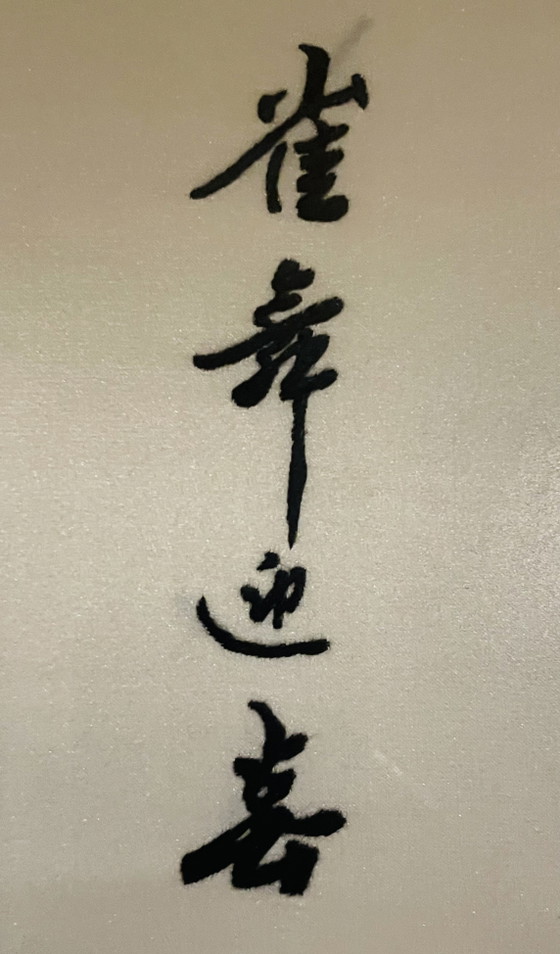 雀舞迎喜